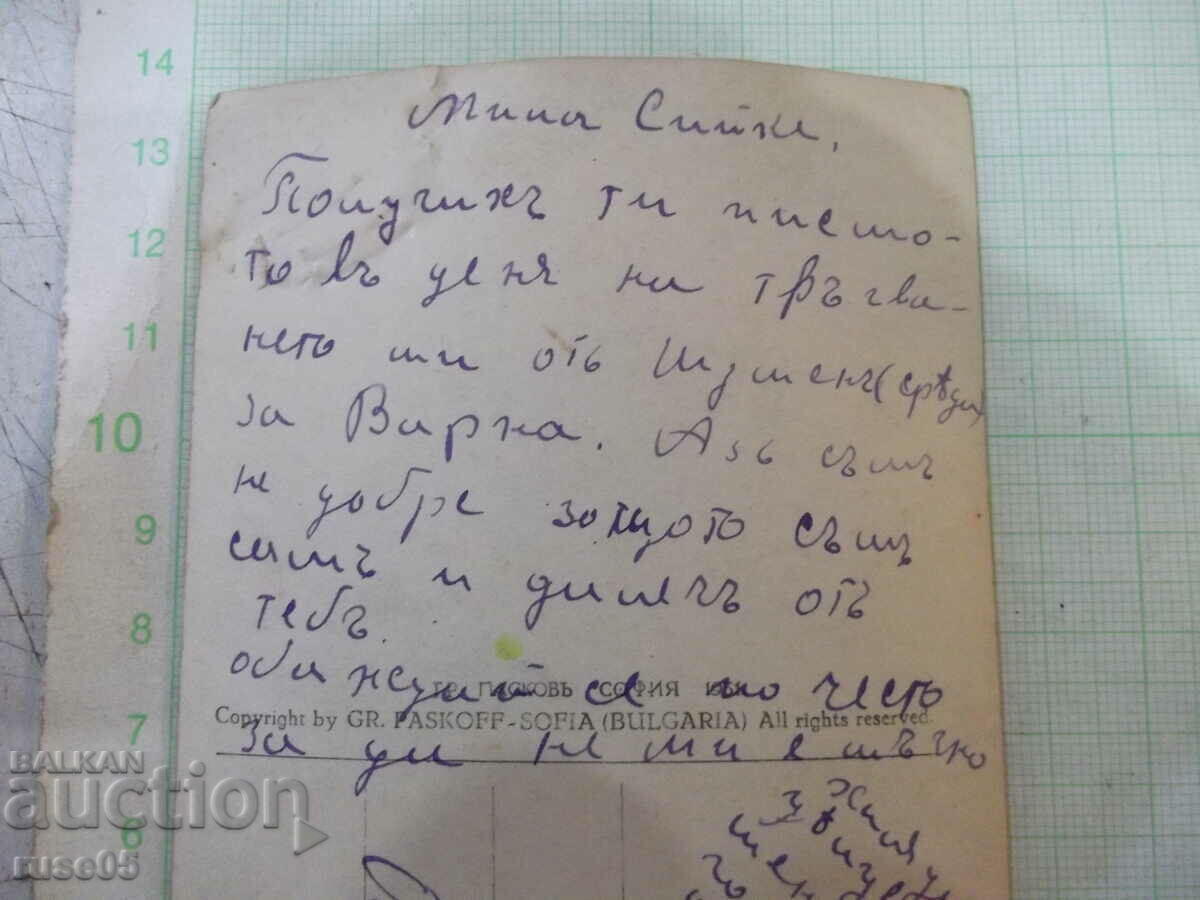 Мила Сийке,
Получихъ ти писмо-
то въ деня на тръгва-
нето ми отъ Шуменъ (срѣда)
за Варна. Азъ съмъ
не добре защото съмъ
самъ и далечъ отъ
тебъ.
обаждай се по често
ГР. ПАСКОВЪ СОФИЯ
Copyright by GR. PASKOFF-SOFIA (BULGARIA) All rights reserved.
за да не ми е мъчно
14
13
12
11
10
9
8
7
6
BALKAN
auction
ruse05